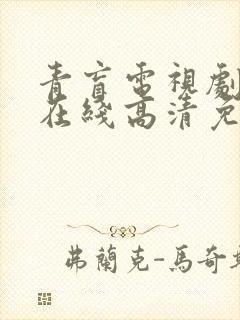 青盲電視劇
在綫高清免
弗蘭克-馬奇